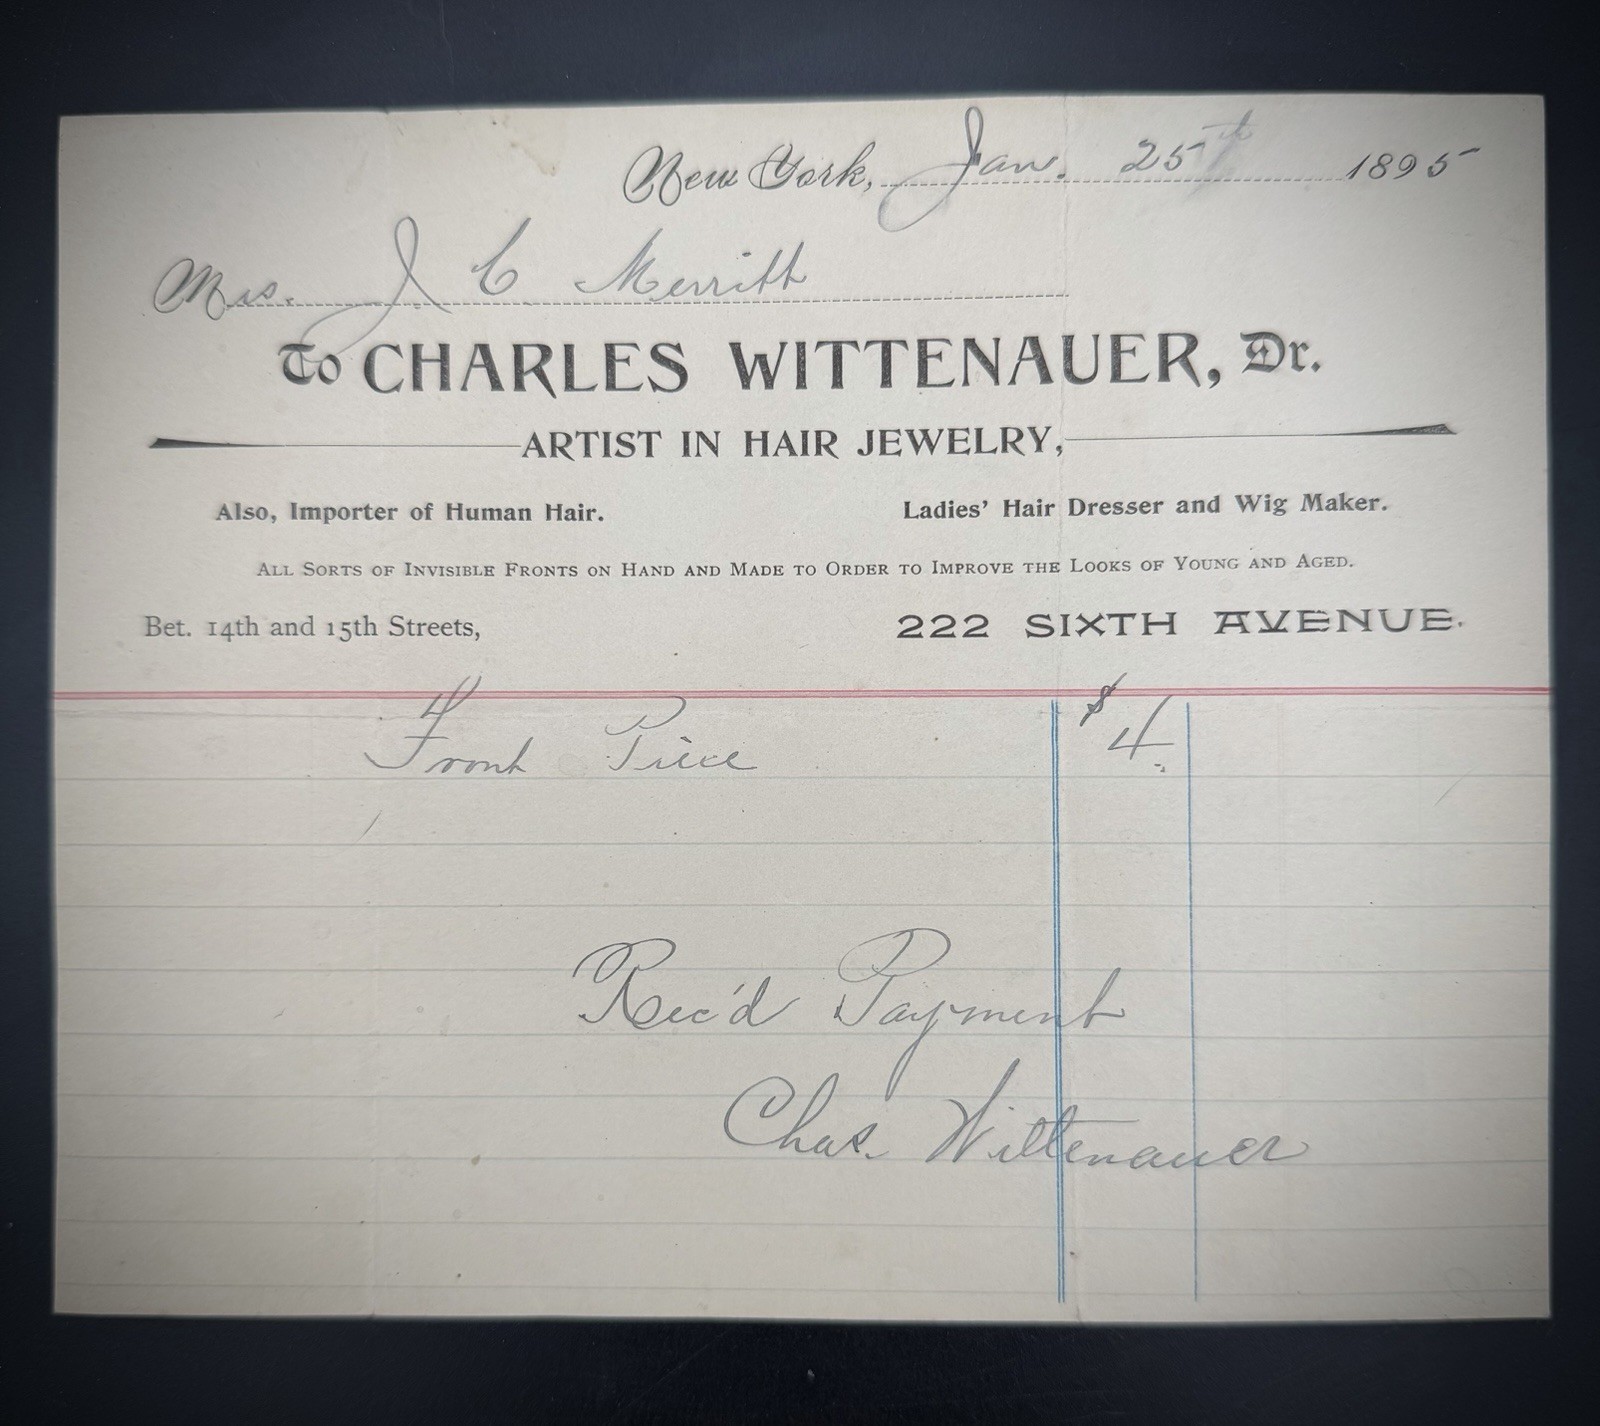 New York, Jan. 25th 1895
Mrs. J C Merritt
To CHARLES WITTENAUER, Dr.
ARTIST IN HAIR JEWELRY,
Also, Importer of Human Hair. Ladies' Hair Dresser and Wig Maker.
ALL SORTS OF INVISIBLE FRONTS ON HAND AND MADE TO ORDER TO IMPROVE THE LOOKS OF YOUNG AND AGED.
Bet. 14th and 15th Streets, 222 SIXTH AVENUE.
Front Piece $4
Rec'd Payment
Chas. Wittenauer